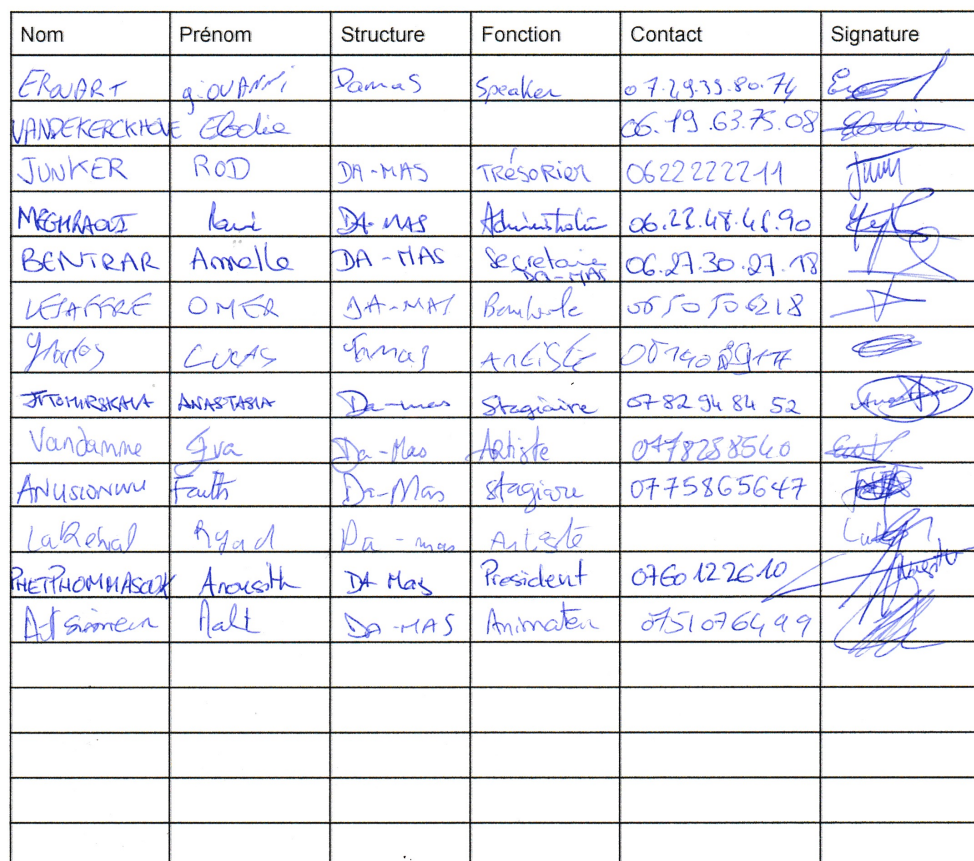 Nom Prénom Structure Fonction Contact Signature
EROUART giOVANNi Damas Speaker 07.29.39.80.74
VANDEKERCKHOVE Elodie 06.19.63.75.08 Elodie
JUNKER ROD DA-MAS TRÉSORIER 0622222211
MEGHRAOUI DA-MAS 06.23.48.46.90
BENTRAR Armelle DA-MAS Secrétaire DA-MAS 06.27.30.27.18
LESAFFRE OMER DA-MAS 0650506218
LUCAS Damas ARtiste
JITOMIRSKAIA ANASTASIA Da-mas Stagiaire 07 82 94 84 52
Vandamme Eva Da-Mas Artiste 0778288540
ANUSIONWU Faith Da-Mas stagiaire 0775865647
LaRehal Ryad Da-mas Artiste
PHETPHOMMASOUK Anousith DA Mas Président 0760122610
DA-MAS Animateur 0751076499